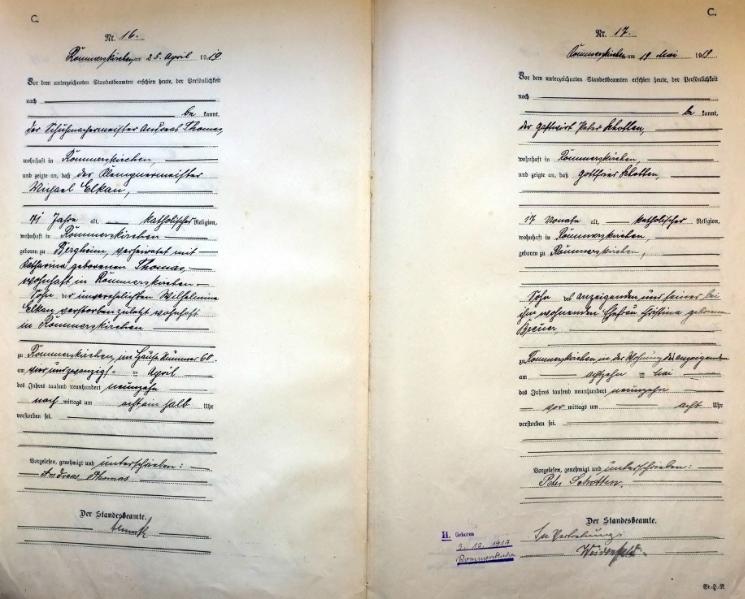 C.
Nr. 16.
Rommerskirchen, am 25. April 1919
Vor dem unterzeichneten Standesbeamten erschien heute, der Persönlichkeit
nach
be kannt,
der Schuhmachermeister Andreas Thomas,
wohnhaft in Rommerskirchen,
und zeigte an, daß der
Elkan,
41 Jahre alt, katholischer Religion,
wohnhaft in Rommerskirchen
geboren zu Bergheim, verheiratet mit
Katharina geborenen Thomas,
wohnhaft in Rommerskirchen
Sohn der unverehelichten Wilhelmine
Elkan verstorben zuletzt wohnhaft
in Rommerskirchen
zu Rommerskirchen, im Hause Nummer 68
am vierundzwanzigsten April
des Jahres tausend neunhundert neunzehn
nachmittags um acht ein halb Uhr
verstorben sei.
Vorgelesen, genehmigt und unterschrieben:
Andreas Thomas
Der Standesbeamte.
C.
Nr. 17.
Rommerskirchen, am 19 Mai 1919
Vor dem unterzeichneten Standesbeamten erschien heute, der Persönlichkeit
nach
be kannt,
der Gastwirt Peter Schotten,
wohnhaft in Rommerskirchen,
und zeigte an, daß Gottfried Schotten,
17 Monate alt, katholischer Religion,
wohnhaft in Rommerskirchen,
geboren zu Rommerskirchen,
Sohn des Anzeigenden und seiner bei
ihm wohnenden Ehefrau Christina geborenen
Breuer,
zu Rommerskirchen, in der Wohnung des Anzeigenden
am achtzehn Mai
des Jahres tausend neunhundert neunzehn
vor mittags um acht Uhr
verstorben sei.
Vorgelesen, genehmigt und unterschrieben:
Peter Schotten.
Der Standesbeamte.
In Vertretung:
Weidenfeld
H. Geboren
12. 1917
Rommerskirchen